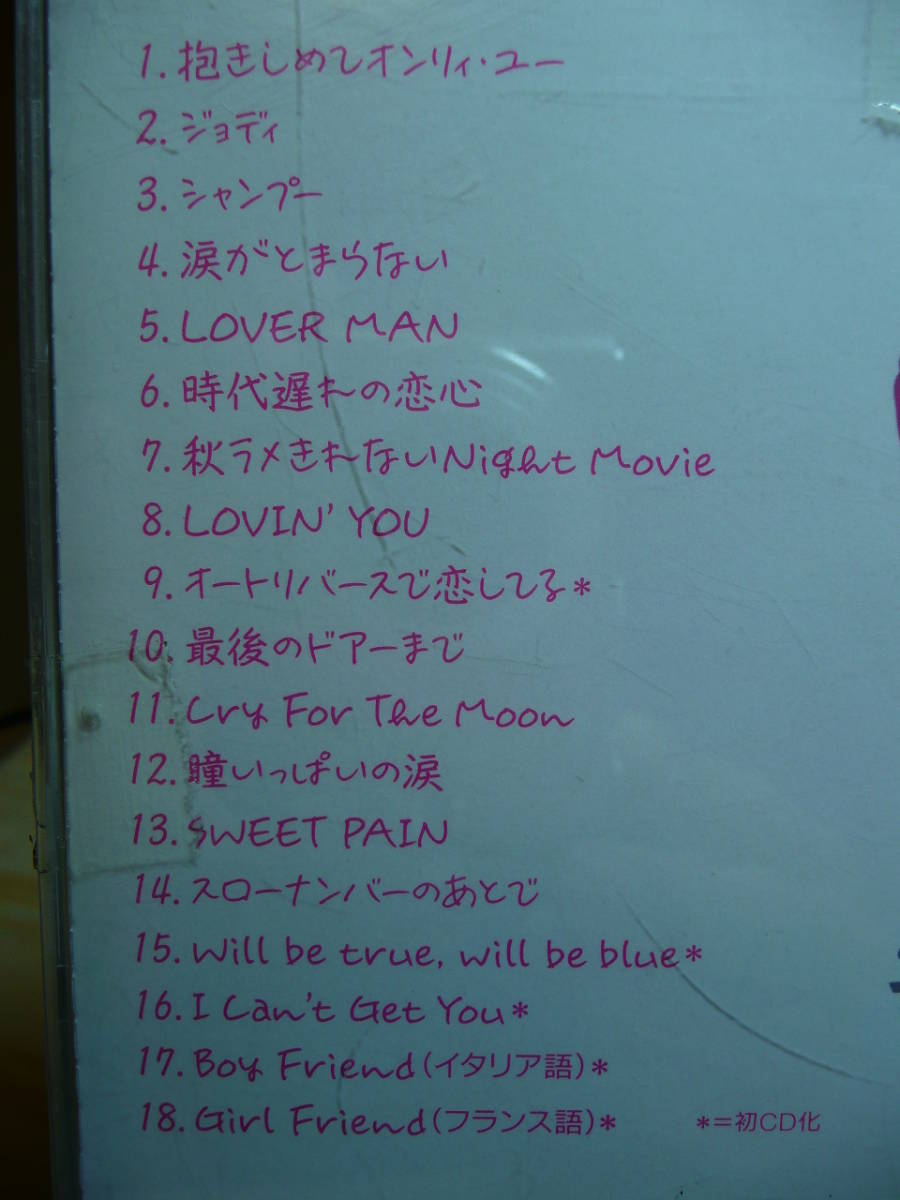 1. 抱きしめてオンリィ・ユー
2. ジョディ
3. シャンプー
4. 涙がとまらない
5. LOVER MAN
6. 時代遅れの恋心
7. 秋ラメきれないNight Movie
8. LOVIN' YOU
9. オートリバースで恋してる*
10. 最後のドアーまで
11. Cry For The Moon
12. 瞳いっぱいの涙
13. SWEET PAIN
14. スローナンバーのあとで
15. Will be true, will be blue*
16. I Can't Get You*
17. Boy Friend(イタリア語)*
18. Girl Friend(フランス語)* *=初CD化